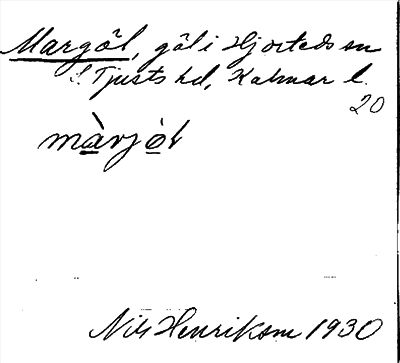 Margöl, göl i Hjorteds sn
S. Tjusts hd, Kalmar l.
20
màrjòl
Nils Henriksson 1930